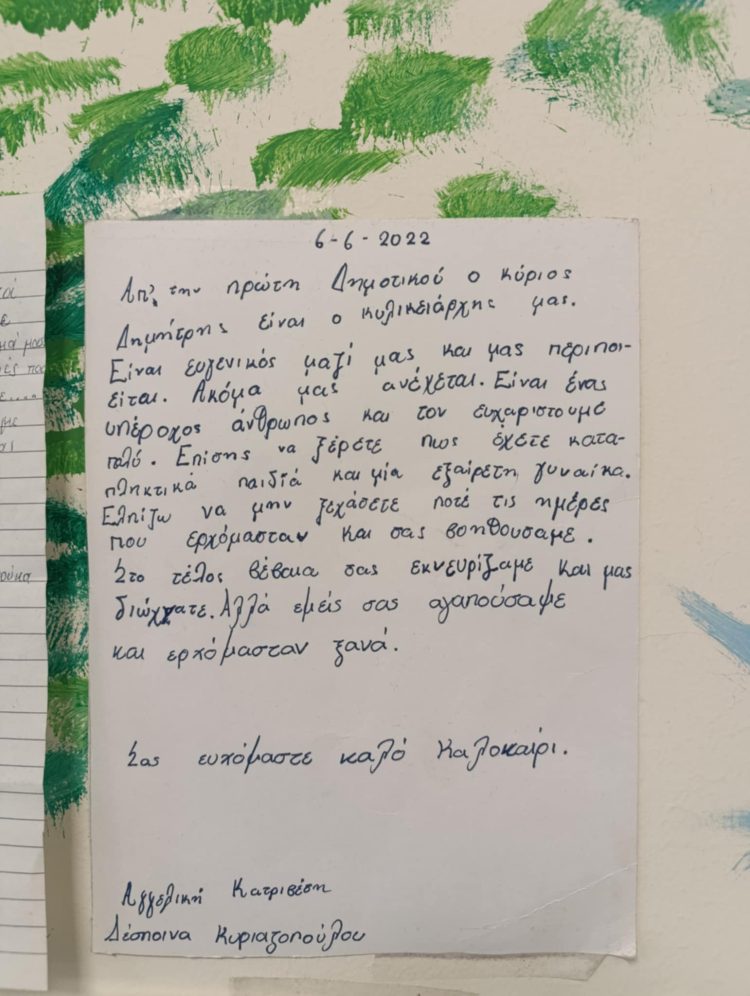 6-6-2022
Απ' την πρώτη Δημοτικού ο κύριος
Δημήτρης είναι ο κυλικειάρχης μας.
Είναι ευγενικός μαζί μας και μας περιποι-
είται. Ακόμα μας ανέχεται. Είναι ένας
υπέροχος άνθρωπος και τον ευχαριστούμε
πολύ. Επίσης να ξέρετε πως έχετε κατα-
πληκτικά παιδιά και μία εξαίρετη γυναίκα.
Ελπίζω να μην ξεχάσετε ποτέ τις ημέρες
που ερχόμασταν και σας βοηθούσαμε.
Στο τέλος βέβαια σας εκνευρίζαμε και μας
διώχνατε. Αλλά εμείς σας αγαπούσαμε
και ερχόμασταν ξανά.
Σας ευχόμαστε καλό Καλοκαίρι.
Αγγελική Κατριβέση
Δέσποινα Κυριαζοπούλου